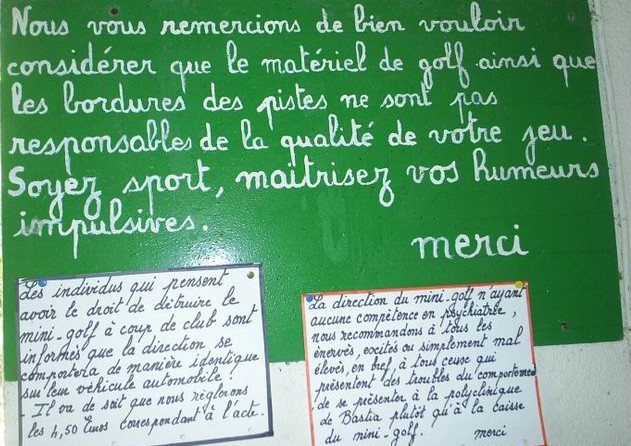 Nous vous remercions de bien vouloir
considérer que le matériel de golf ainsi que
les bordures des pistes ne sont pas
responsables de la qualité de votre jeu.
Soyez sport, maitrisez vos humeurs
impulsives.
merci
Les individus qui pensent
avoir le droit de détruire le
mini-golf à coup de club sont
informés que la direction se
comportera de manière identique
sur leur véhicule automobile !
- Il va de soit que nous règlerons
les 4,50 Euros correspondant à l'acte.
La direction du mini-golf n'ayant
aucune compétence en psychiatrie,
nous recommandons à tous les
énervés, excités ou simplement mal
élevés, en bref, à tous ceux qui
présentent des troubles du comportement
de se présenter à la polyclinique
de Bastia plutôt qu'à la caisse
du mini-golf. merci